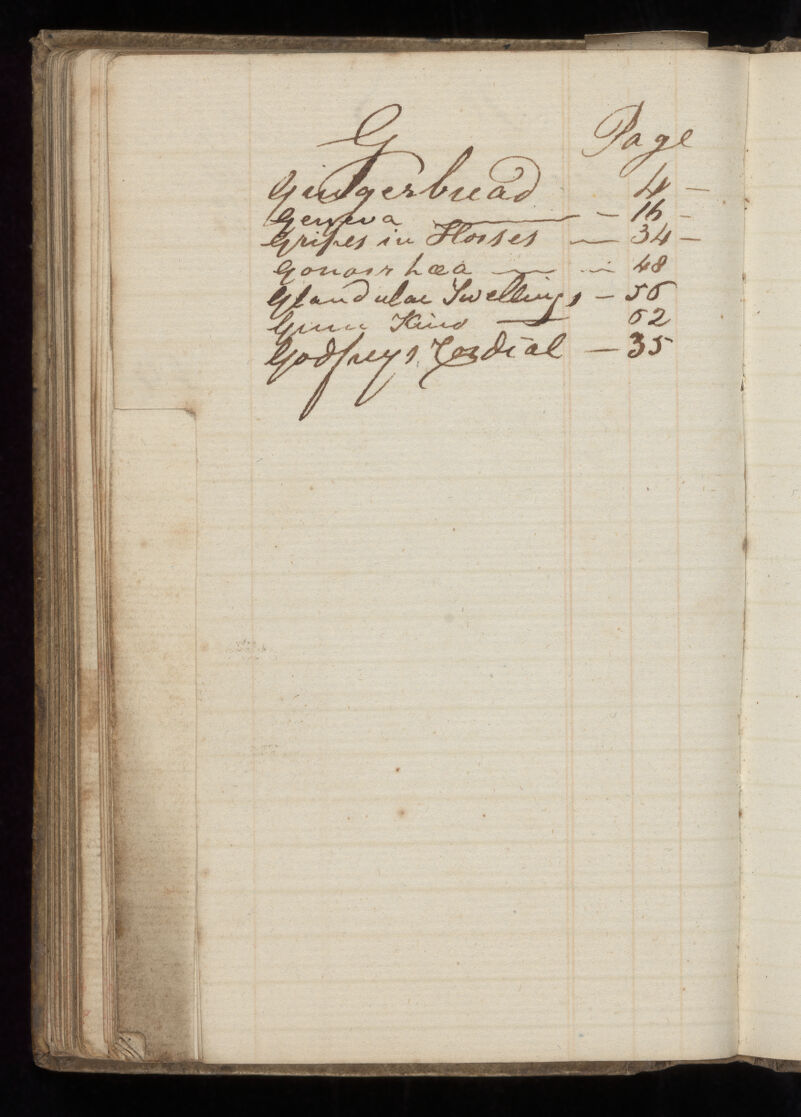 G Page
Gingerbread 4 —
Geneva — — 16 —
Gripes in Horses — 34 —
Gonorrhæa — — 48
Glandular Swellings — 56
Gum Kino — 62
Godfreys Cordial — 35